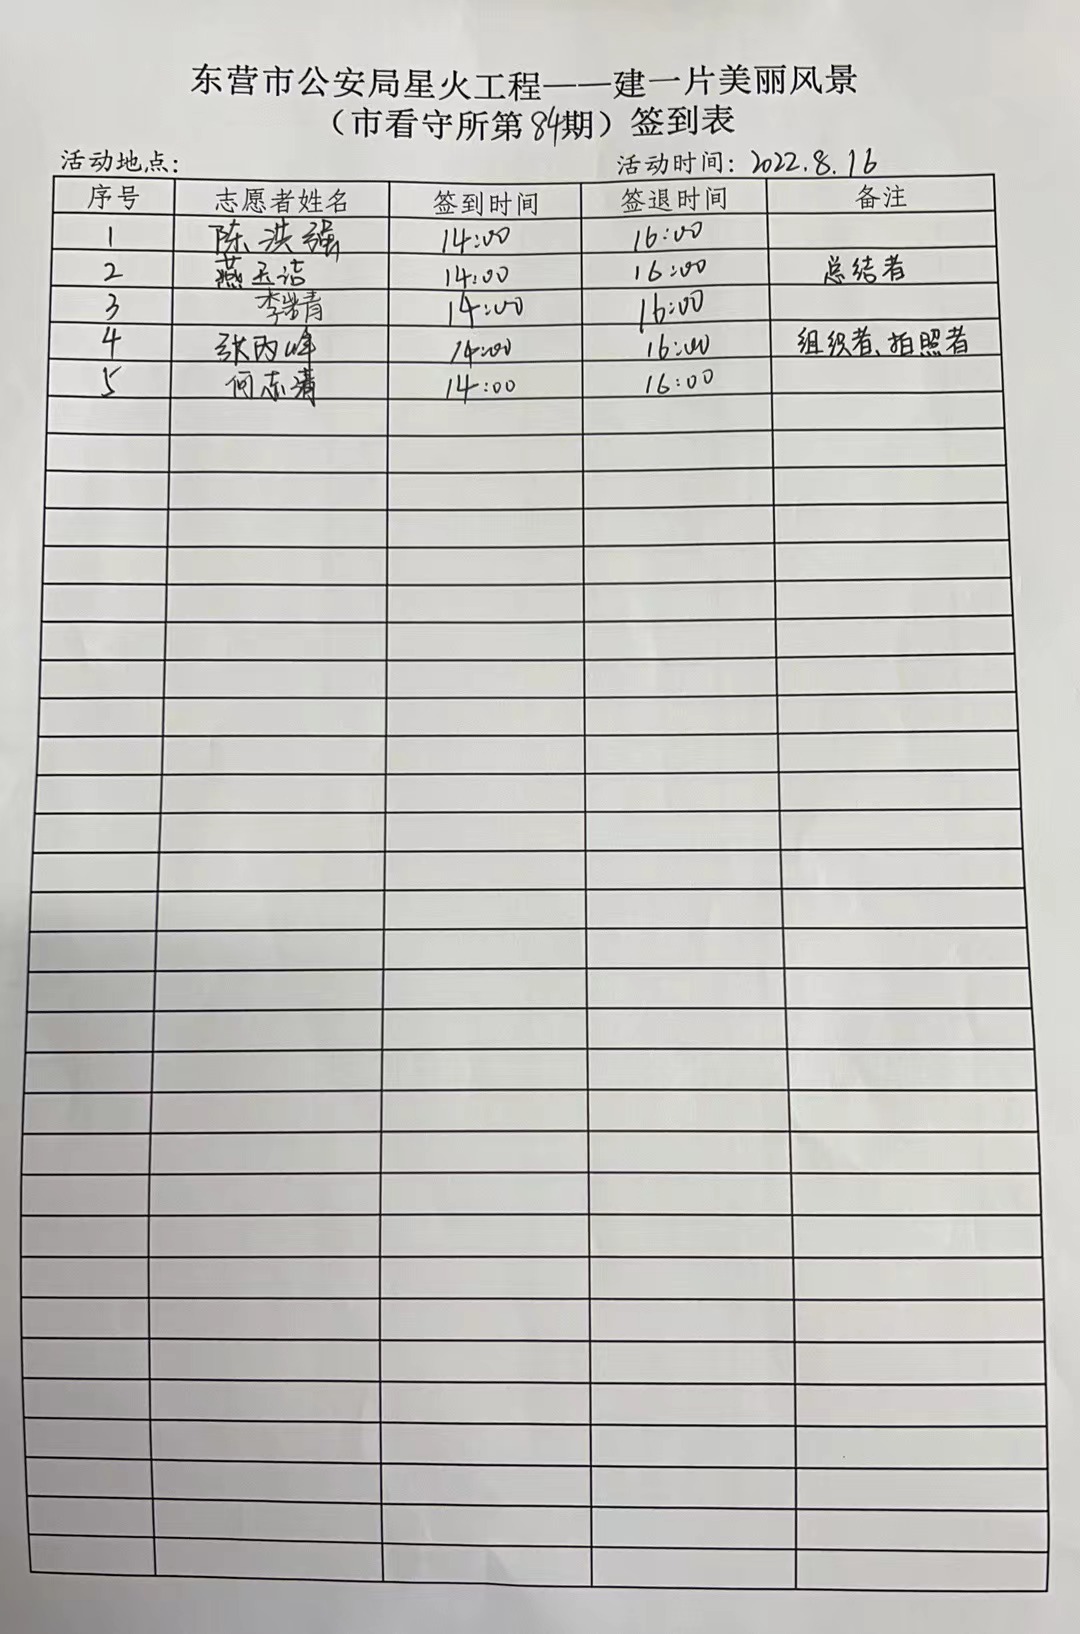 东营市公安局星火工程——建一片美丽风景
（市看守所第84期）签到表
活动地点： 活动时间：2022.8.16
序号 志愿者姓名 签到时间 签退时间 备注
1 陈洪强 14:00 16:00
2 燕玉洁 14:00 16:00 总结者
3 李 青 14:00 16:00
4 张丙峰 14:00 16:00 组织者、拍照者
5 何东清 14:00 16:00